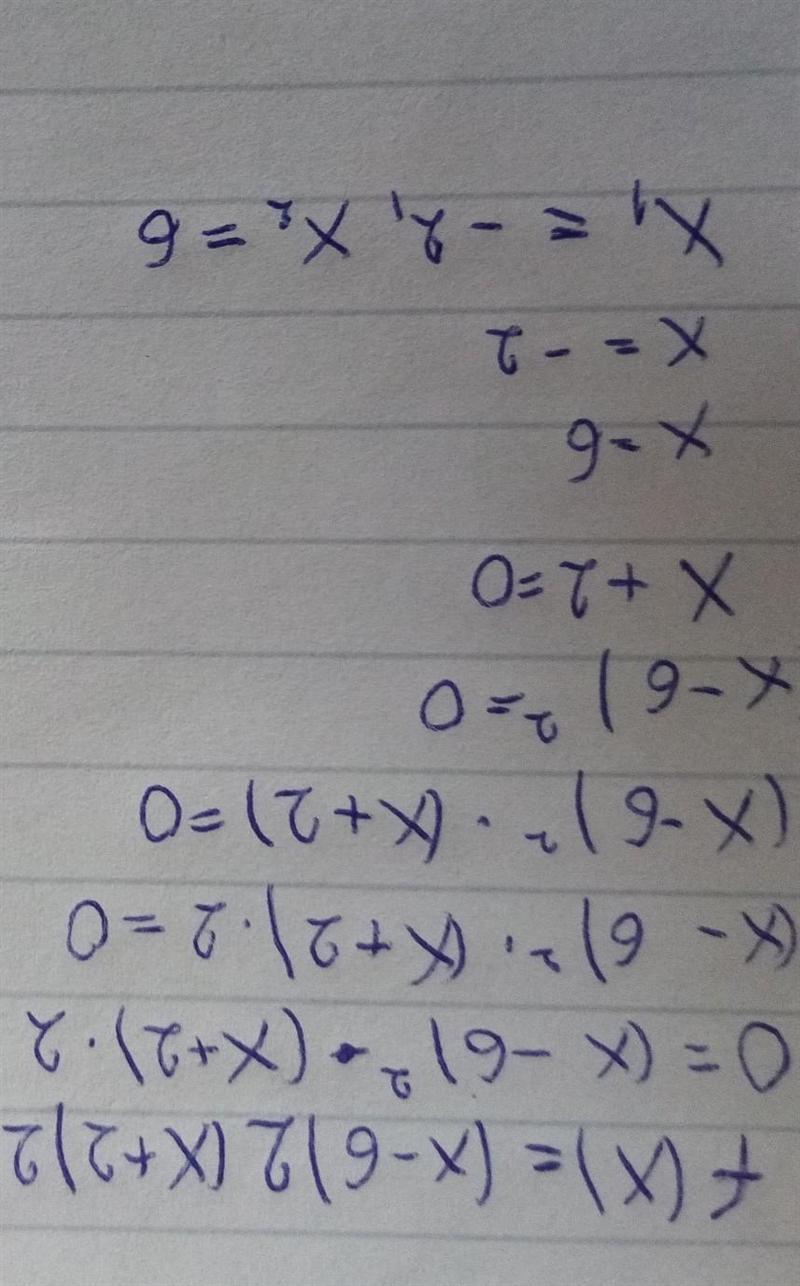 f(x)=(x-6)2(x+2)2
0=(x-6)²·(x+2)·2
(x-6)²·(x+2)·2=0
(x-6)²·(x+2)=0
x-6)²=0
x+2=0
x=6
x=-2
x₁=-2, x₂=6